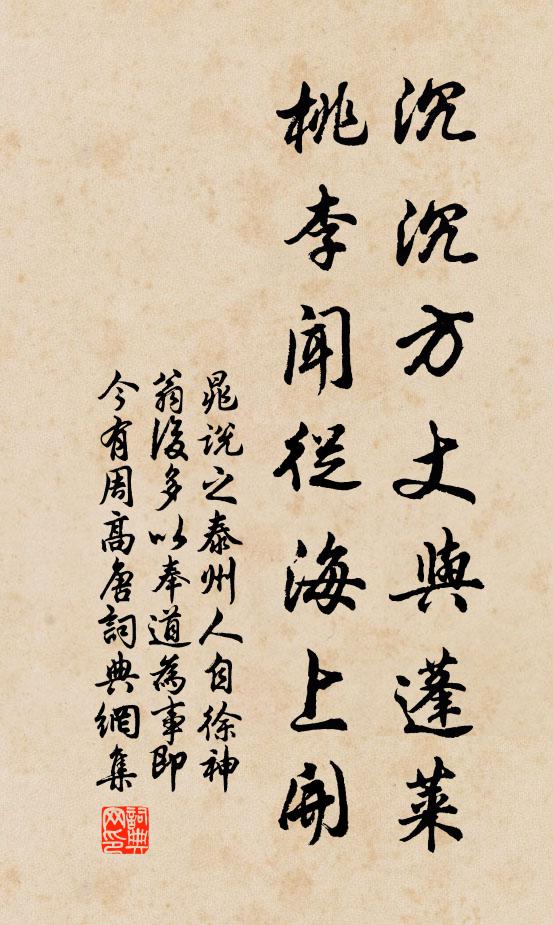 沉沉方丈與蓬萊
桃李聞從海上開
晁說之泰州人自徐神
翁後多以奉道為事即
今有周高唐詞典網集
詞典
网印